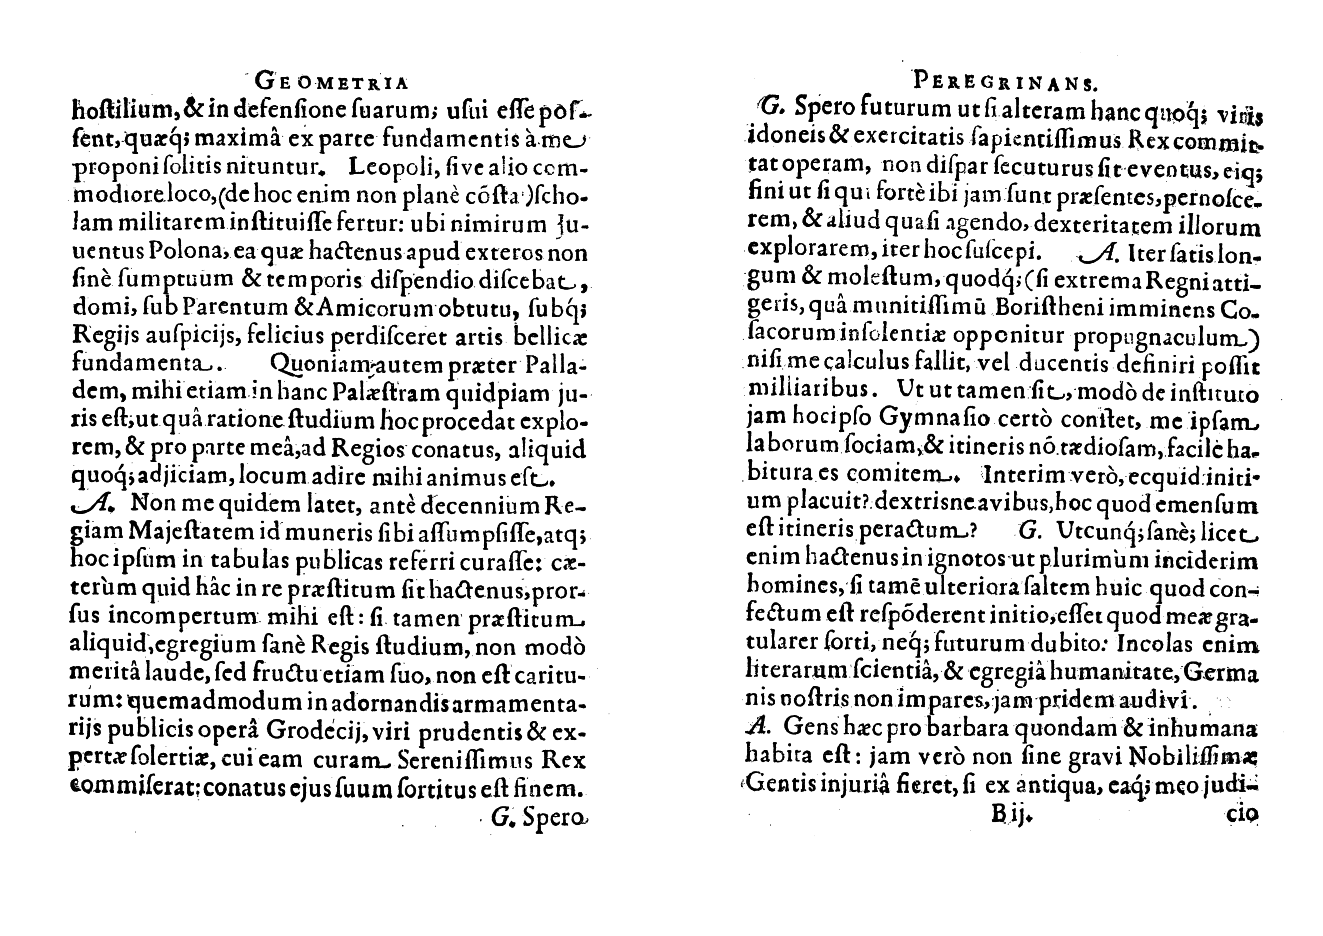 GEOMETRIA
hoſtilium, & in defenſione ſuarum, uſui eſſe poſ-
ſent, quæq́; maximâ ex parte fundamentis à me
proponi ſolitis nituntur. Leopoli, ſive alio com-
modiore loco, (de hoc enim non planè cóſta) ſcho-
lam militarem inſtituiſſe fertur: ubi nimirum Ju-
uentus Polona, ea quæ hactenus apud exteros non
ſinè ſumptuum & temporis diſpendio diſcebat,
domi, ſub Parentum & Amicorum obtutu, ſubq́;
Regijs auſpicijs, felicius perdiſceret artis bellicæ
fundamenta. Quoniam autem præter Palla-
dem, mihi etiam in hanc Palæſtram quidpiam ju-
ris eſt, ut quâ ratione ſtudium hoc procedat explo-
rem, & pro parte meâ, ad Regios conatus, aliquid
quoq́; adjiciam, locum adire mihi animus eſt.
A. Non me quidem latet, antè decennium Re-
giam Majeſtatem id muneris ſibi aſſumpſiſſe, atq;
hoc ipſum in tabulas publicas referri curaſſe: cæ-
terùm quid hâc in re præſtitum ſit hactenus, pror-
ſus incompertum mihi eſt: ſi tamen præſtitum
aliquid, egregium ſanè Regis ſtudium, non modò
meritâ laude, ſed fructu etiam ſuo, non eſt caritu-
rum: quemadmodum in adornandis armamenta-
rijs publicis operâ Grodecij, viri prudentis & ex-
pertæ ſolertiæ, cui eam curam Sereniſſimus Rex
commiſerat: conatus ejus ſuum ſortitus eſt finem.
G. Spero
PEREGRINANS.
G. Spero futurum ut ſi alteram hanc quoq́; viris
idoneis & exercitatis ſapientiſſimus Rex commit-
tat operam, non diſpar ſecuturus ſit eventus, eiq;
fini ut ſi qui fortè ibi jam ſunt præſentes, pernoſce-
rem, & aliud quaſi agendo, dexteritatem illorum
explorarem, iter hoc ſuſcepi. A. Iter ſatis lon-
gum & moleſtum, quodq́; (ſi extrema Regni atti-
geris, quâ munitiſſimū Boriſtheni imminens Co-
ſacorum inſolentiæ opponitur propugnaculum)
niſi me calculus fallit, vel ducentis definiri poſſit
milliaribus. Ut ut tamen ſit, modò de inſtituto
jam hoc ipſo Gymnaſio certò conſtet, me ipſam
laborum ſociam, & itineris nō tædioſam, facilè ha-
bitura es comitem. Interim verò, ecquid initi-
um placuit? dextrisne avibus, hoc quod emenſum
eſt itineris peractum? G. Utcunq́; ſanè; licet
enim hactenus in ignotos ut plurimùm inciderim
homines, ſi tamē ulteriora ſaltem huic quod con-
fectum eſt reſpōderent initio, eſſet quod meæ gra-
tularer ſorti, neq́; futurum dubito: Incolas enim
literarum ſcientiâ, & egregiâ humanitate, Germa
nis noſtris non impares, jam pridem audivi.
A. Gens hæc pro barbara quondam & inhumana
habita eſt: jam verò non ſine gravi Nobiliſſimæ
Gentis injuriâ fieret, ſi ex antiqua, eaq́; meo judi-
B ij. cio